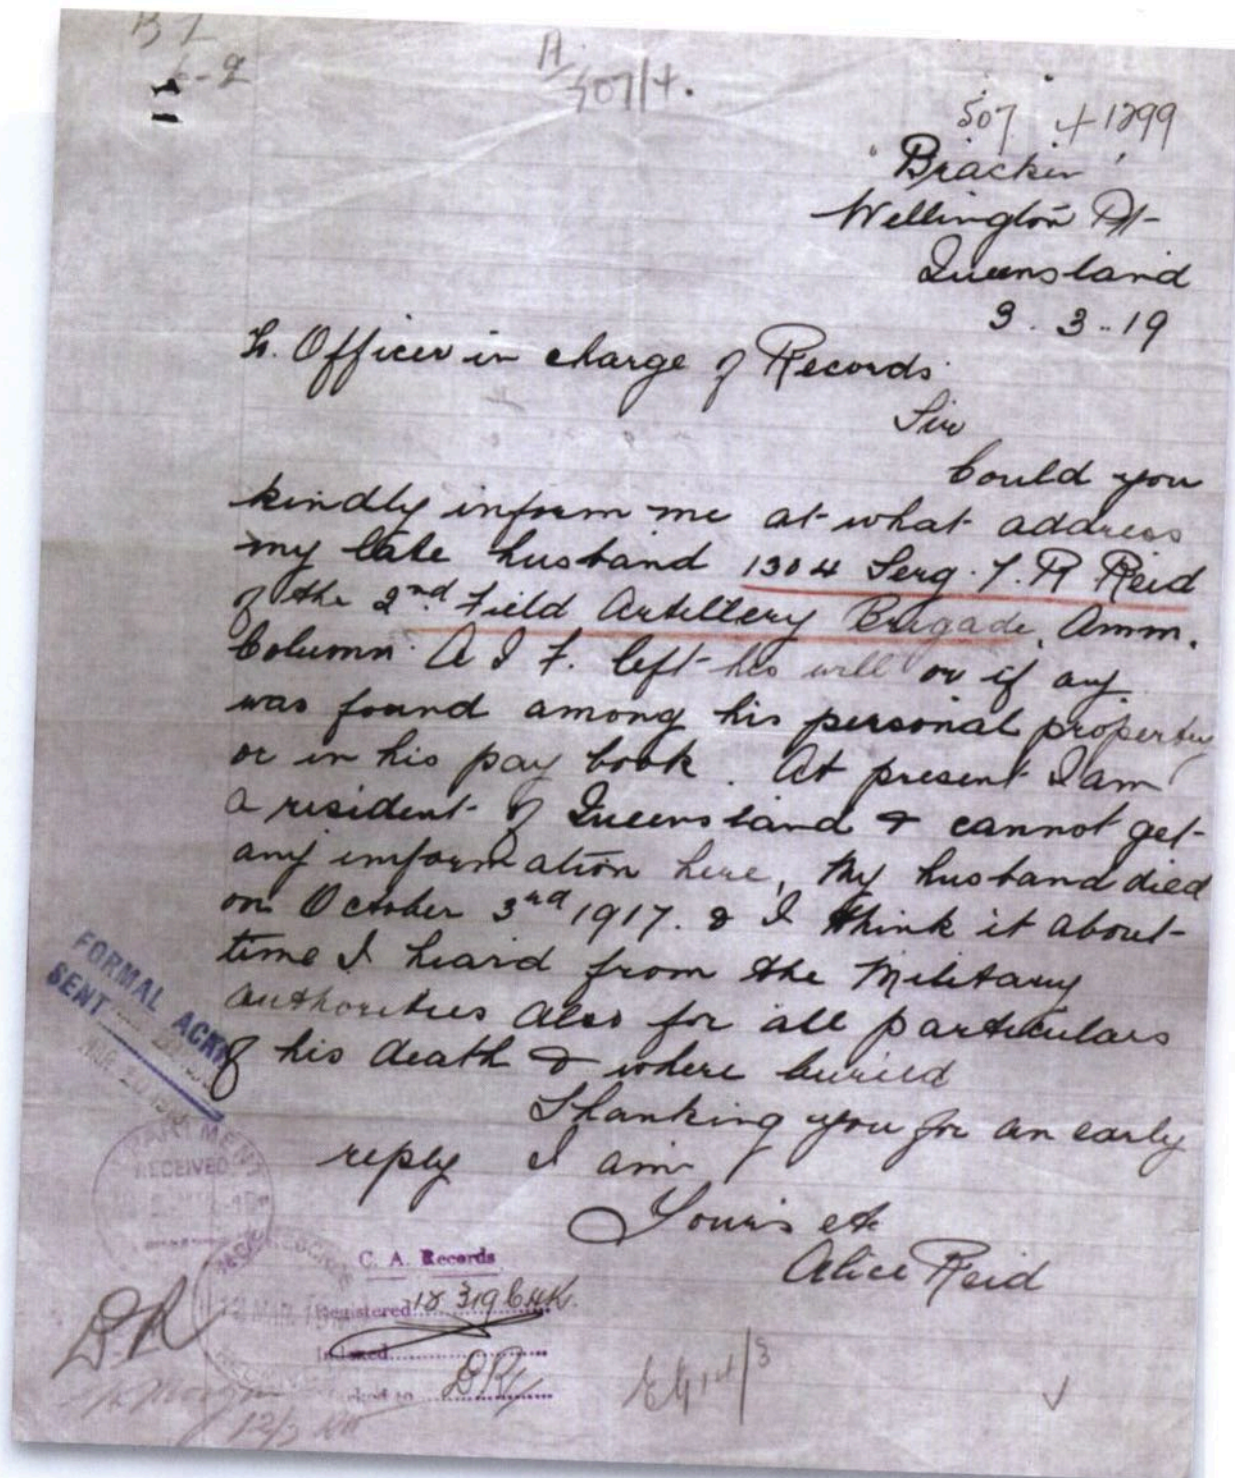 A
507/4.
507 4 1299
"Brackin"
Wellington Pt
Queensland
3.3.19
To. Officer in charge of Records
Sir
Could you
kindly inform me at what address
my late husband 1304 Serg. T. R Reid
of the 2nd Field Artillery Brigade, Amm.
Column A I F. left his will or if any
was found among his personal property
or in his pay book. At present I am
a resident of Queensland & cannot get
any information here, My husband died
on October 3rd 1917. & I think it about
time I heard from the Military
authorities also for all particulars
of his death & where buried
Thanking you for an early
reply I am
Yours etc
Alice Reid
FORMAL ACK
SENT
RECEIVED
C. A. Records
Registered 18 3 19
Indexed